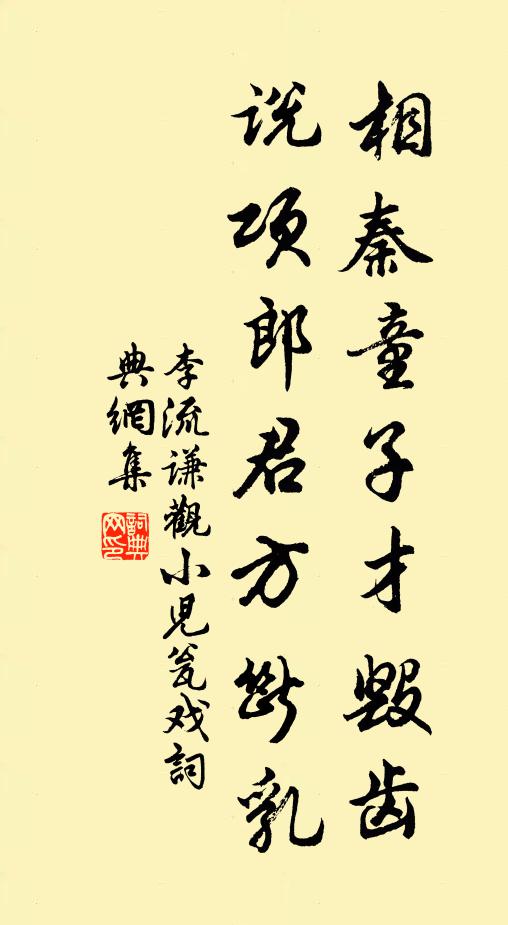 相秦童子才毁齿
说项郎君方断乳
李流谦觀小児瓮戏詞
典網集
詞典
网印